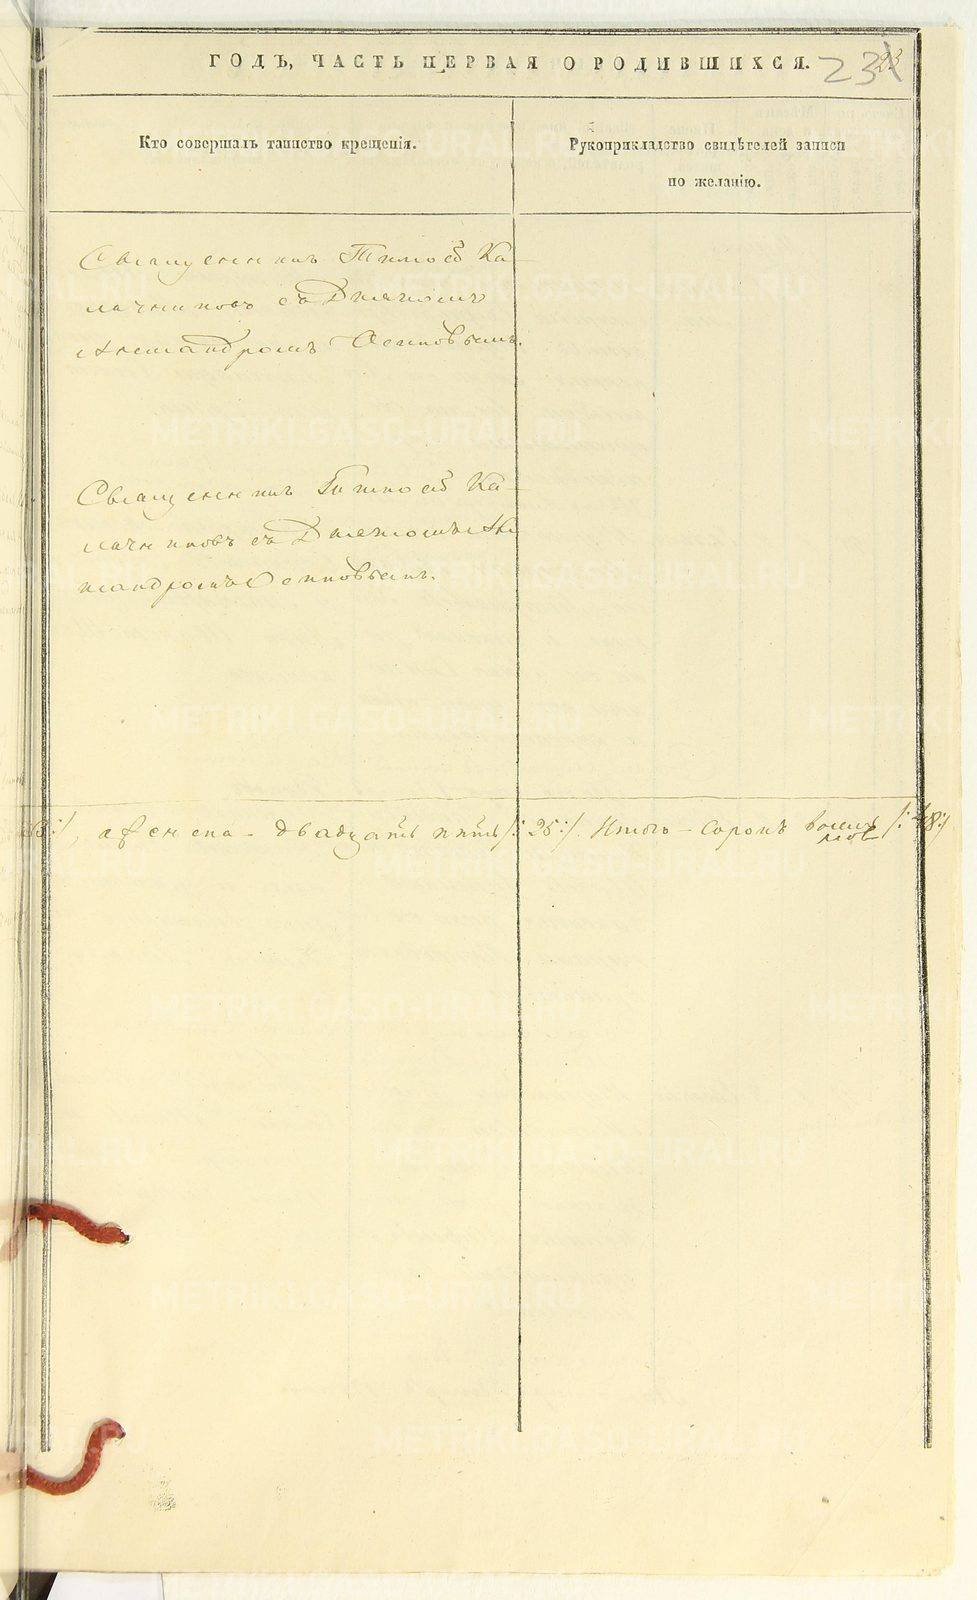 ГОДЪ, ЧАСТЬ ПЕРВАЯ О РОДИВШИХСЯ.
23
Кто совершалъ таинство крещенія.
Рукоприкладство свидѣтелей записи
по желанію.
Священникъ Тимоѳей Ка-
лачниковъ съ Дьячкомъ
Александромъ Осиповымъ.
Священникъ Тимоѳей Ка-
лачниковъ съ Дьячкомъ Але-
ксандромъ Осиповымъ.
женска - двадцать пять /: 25 :/. Итого - сорокъ восемь /: 48 :/
METRIKI.GASO-URAL.RU